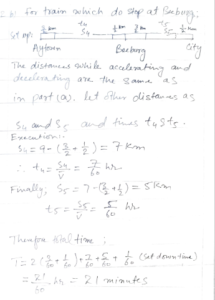 b) For train which do stop at Beeburg:
t4 t5
Set up: S4 S5
Aytown Beeburg City
The distances while accelerating and
decelerating are the same as
in part (a). Let other distances as
S4 and S5 and times t4 & t5.
Execution:-
S4 = 9 - (3/2 + 1/2) = 7 km
∴ t4 = S4/V = 7/60 hr
Finally; S5 = 7 - (3/2 + 1/2) = 5 km
t5 = S5/V = 5/60 hr
Therefore total time:
T = 2(3/60 + 1/60) + 7/60 + 5/60 + 1/60 (Set down time)
= 21/60 hrs = 21 minutes